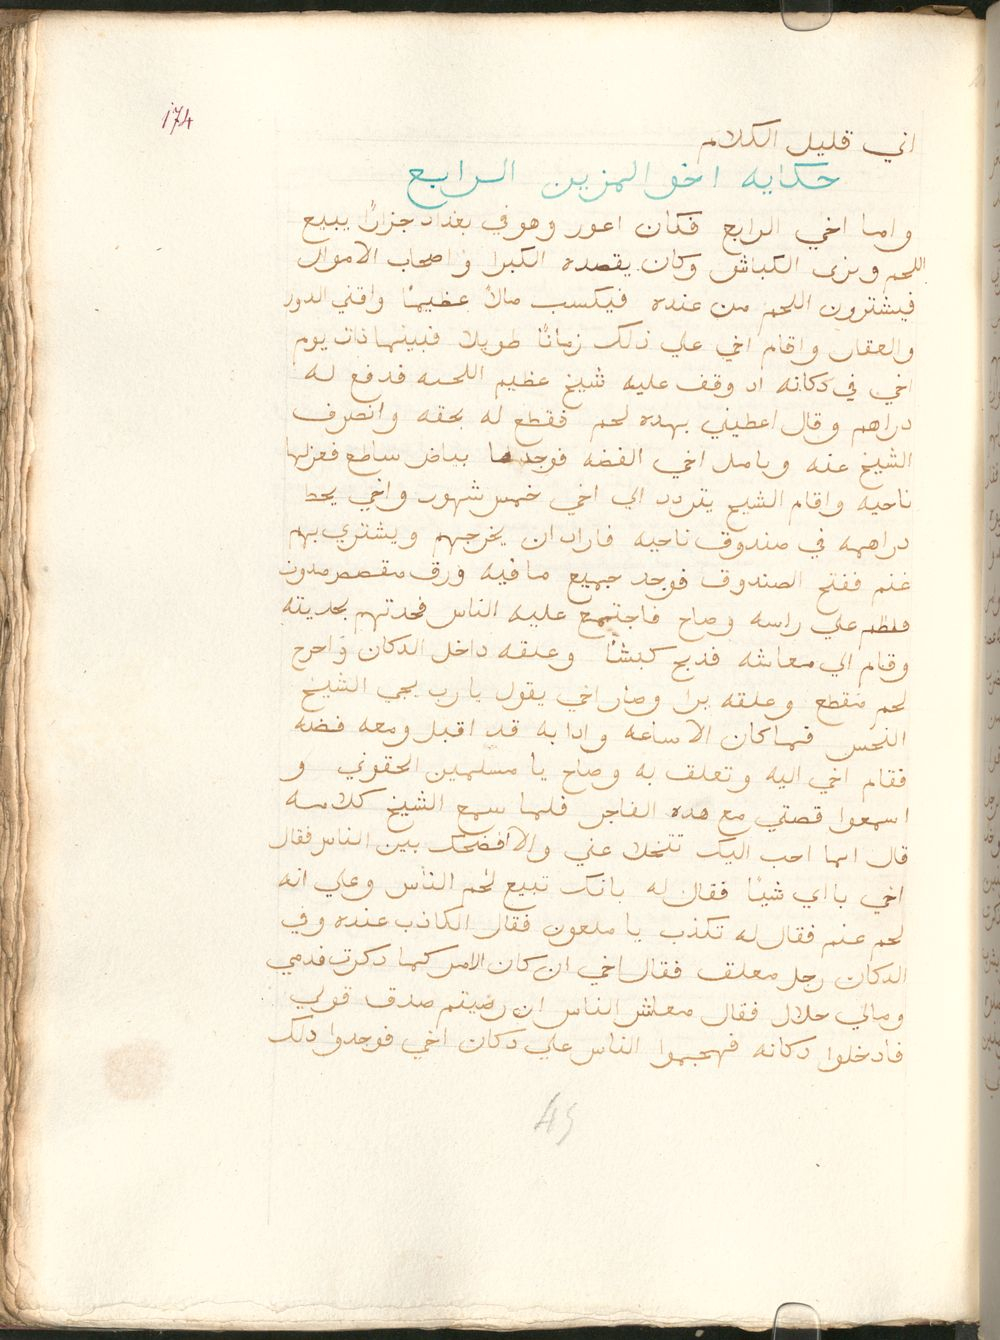 174
اني قليل الكلام
حكايه اخو المزين الرابع
واما اخي الرابع فكان اعور وهو في بغداد جزارًا يبيع
اللحم ويربى الكباش وكان يقصده الكبرا واصحاب الاموال
فيشترون اللحم من عنده فيكسب مالاً عظيمًا واقني الدور
والعقار واقام اخي علي ذلك زمانًا طويلا فبينما ذات يوم
اخي في دكانه اد وقف عليه شيخ عظيم اللحيه فدفع له
دراهم وقال اعطيني بهده لحم فقطع له بحقه وانصرف
الشيخ عنه وتامل اخي الفضه فوجدها بياض ساطع فعزلها
ناحيه واقام الشيخ يتردد الي اخي خمس شهور واخي يحط
دراهمه في صندوق ناحيه فاراد ان يخرجهم ويشتري بهم
غنم ففتح الصندوق فوجد جميع ما فيه ورق مقصص مدور
فلطم علي راسه وصاح فاجتمع عليه الناس فحدتهم بحديته
وقام الي معاشه فدبح كبشًا وعلقه داخل الدكان واخرج
لحم مقطع وعلقه برا وصار اخي يقول يا رب يجي الشيخ
النحس فما كان الا ساعه وادا به قد اقبل ومعه فضه
فقام اخي اليه وتعلق به وصاح يا مسلمين الحقوني و
اسمعوا قصتي مع هده الفاجر فلما سمع الشيخ كلامه
قال ايما احب اليك تتخلا عني والا افضحك بين الناس فقال
اخي باي شيئًا فقال له بانك تبيع لحم الناس وعلي انه
لحم غنم فقال له تكذب يا ملعون فقال الكاذب عنده وفي
الدكان رجل معلق فقال اخي ان كان الامر كما دكرت فدمي
ومالي حلال فقال معاشر الناس ان رضيتم صدق قولي
فادخلوا دكانه فهجموا الناس علي دكان اخي فوجدوا دلك